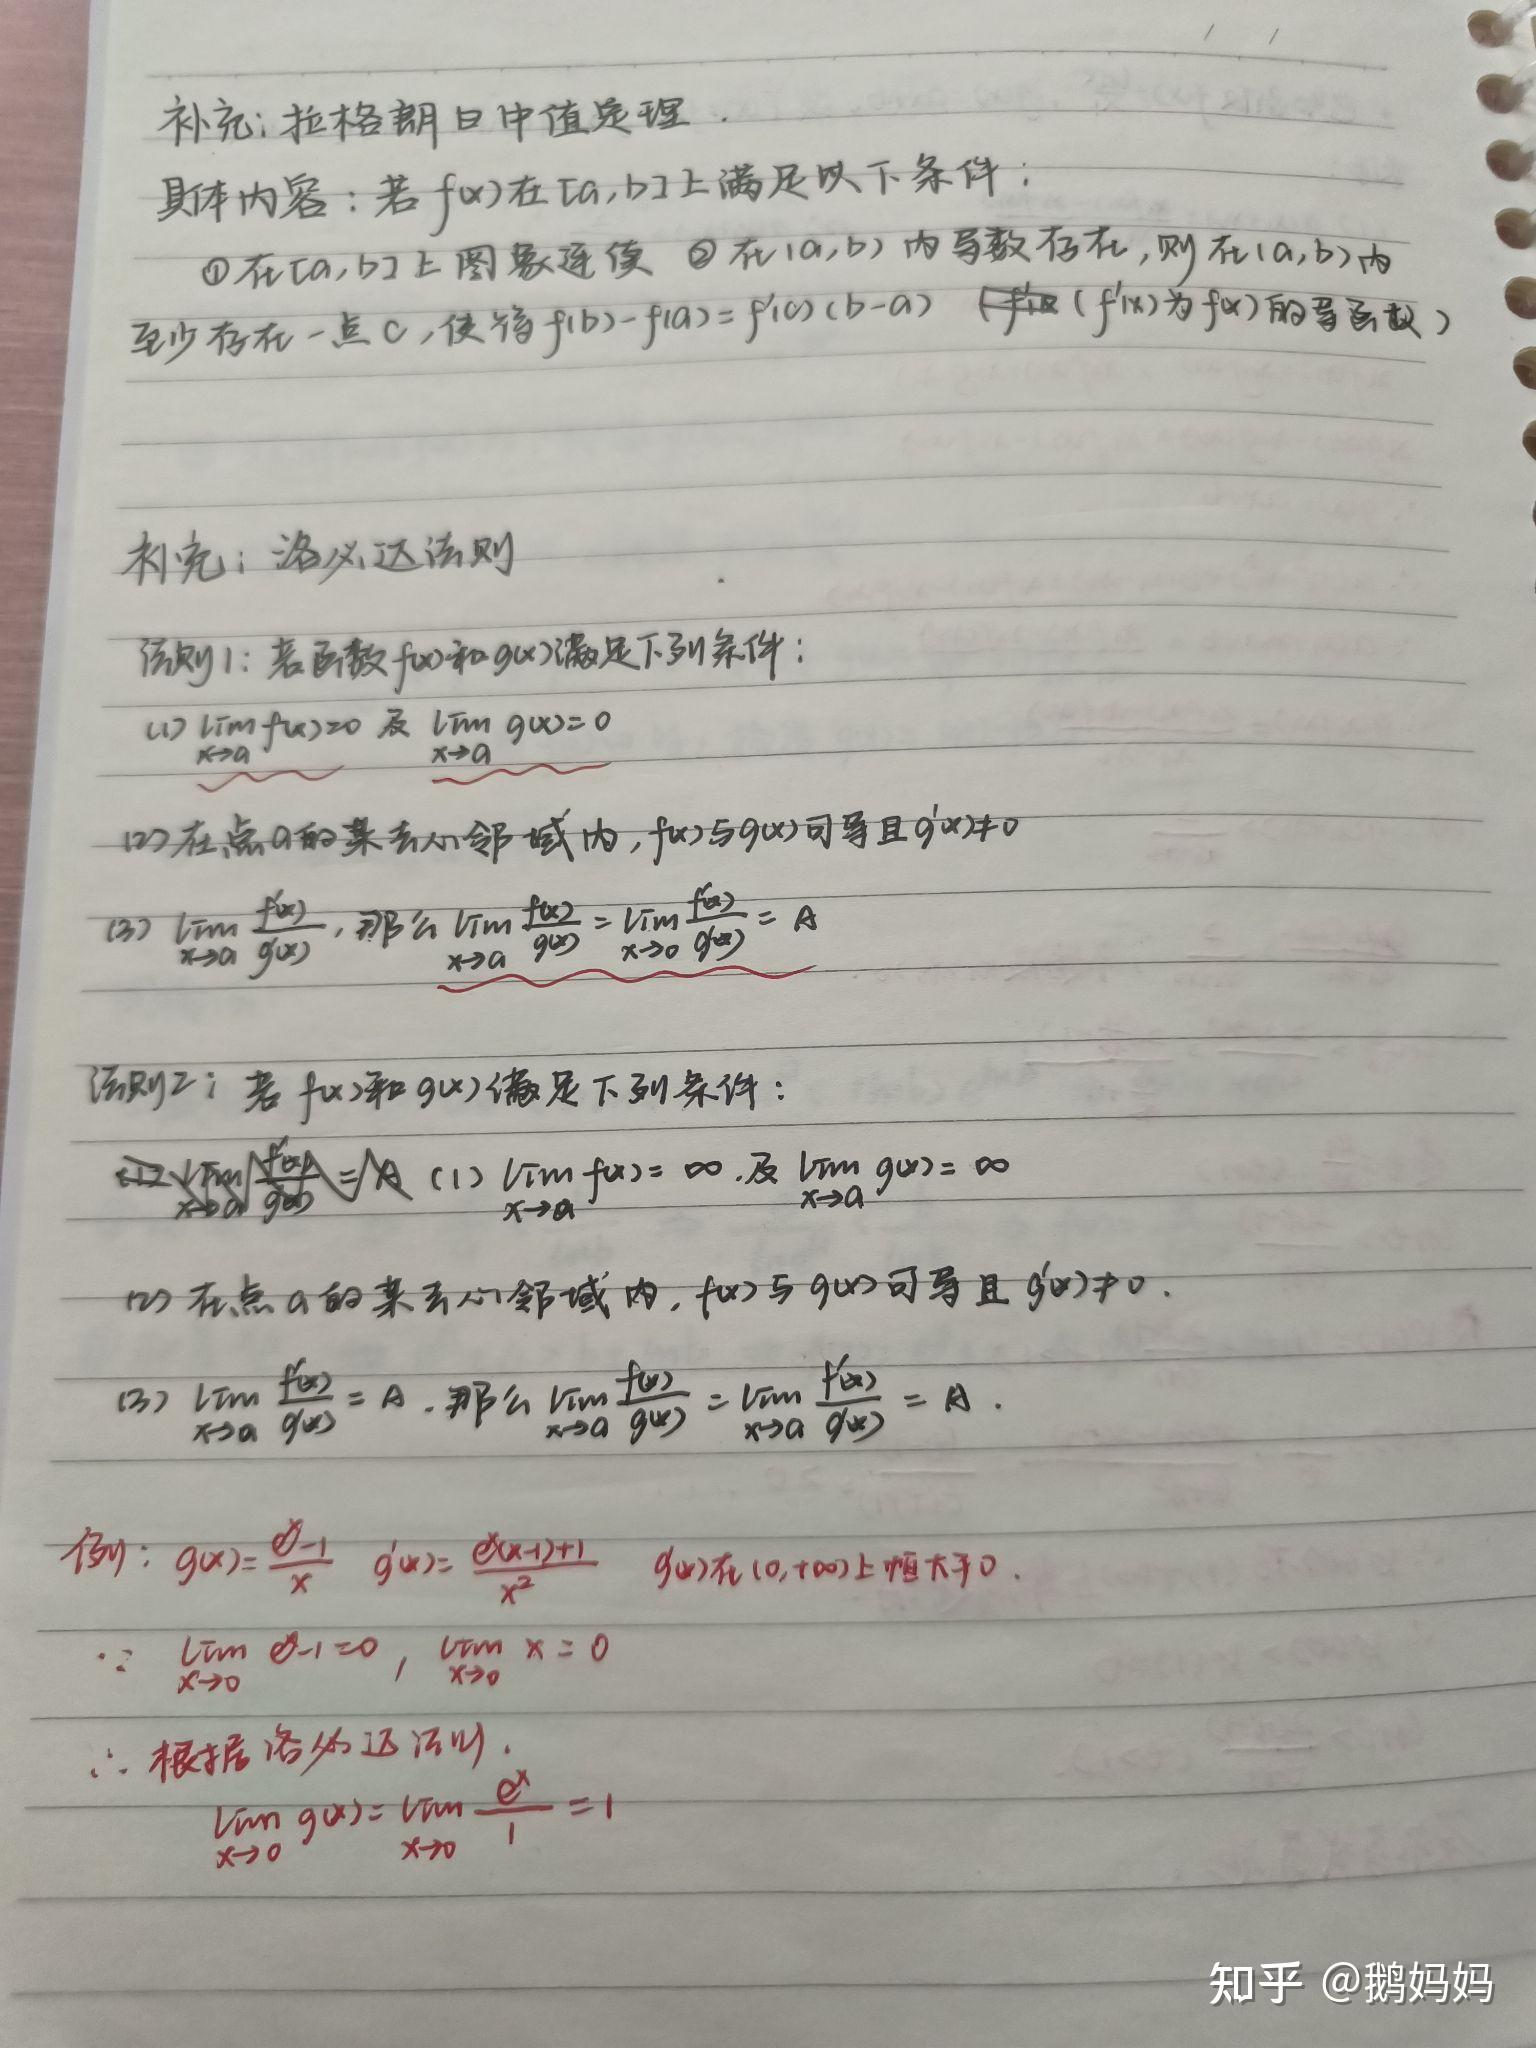 补充:拉格朗日中值定理.
具体内容:若f(x)在[a,b]上满足以下条件:
①在[a,b]上图象连续 ②在(a,b)内导数存在,则在(a,b)内
至少存在一点c,使得f(b)-f(a)=f'(c)(b-a) (f'(x)为f(x)的导函数)
补充:洛必达法则
法则1:若函数f(x)和g(x)满足下列条件:
(1) lim_{x→a} f(x)=0 及 lim_{x→a} g(x)=0
(2)在点a的某去心邻域内,f(x)与g(x)可导且g'(x)≠0
(3) lim_{x→a} f'(x)/g'(x),那么 lim_{x→a} f(x)/g(x) = lim_{x→0} f'(x)/g'(x) = A
法则2:若f(x)和g(x)满足下列条件:
(1) lim_{x→a} f(x)=∞.及 lim_{x→a} g(x)=∞
(2)在点a的某去心邻域内,f(x)与g(x)可导且g'(x)≠0.
(3) lim_{x→a} f'(x)/g'(x) = A.那么 lim_{x→a} f(x)/g(x) = lim_{x→a} f'(x)/g'(x) = A.
例: g(x)=(e^x-1)/x g'(x)=(e^x(x-1)+1)/x² g'(x)在(0,+∞)上恒大于0.
∵ lim_{x→0} e^x-1=0, lim_{x→0} x=0
∴根据洛必达法则.
lim_{x→0} g(x)=lim_{x→0} e^x/1=1
知乎 @鹅妈妈